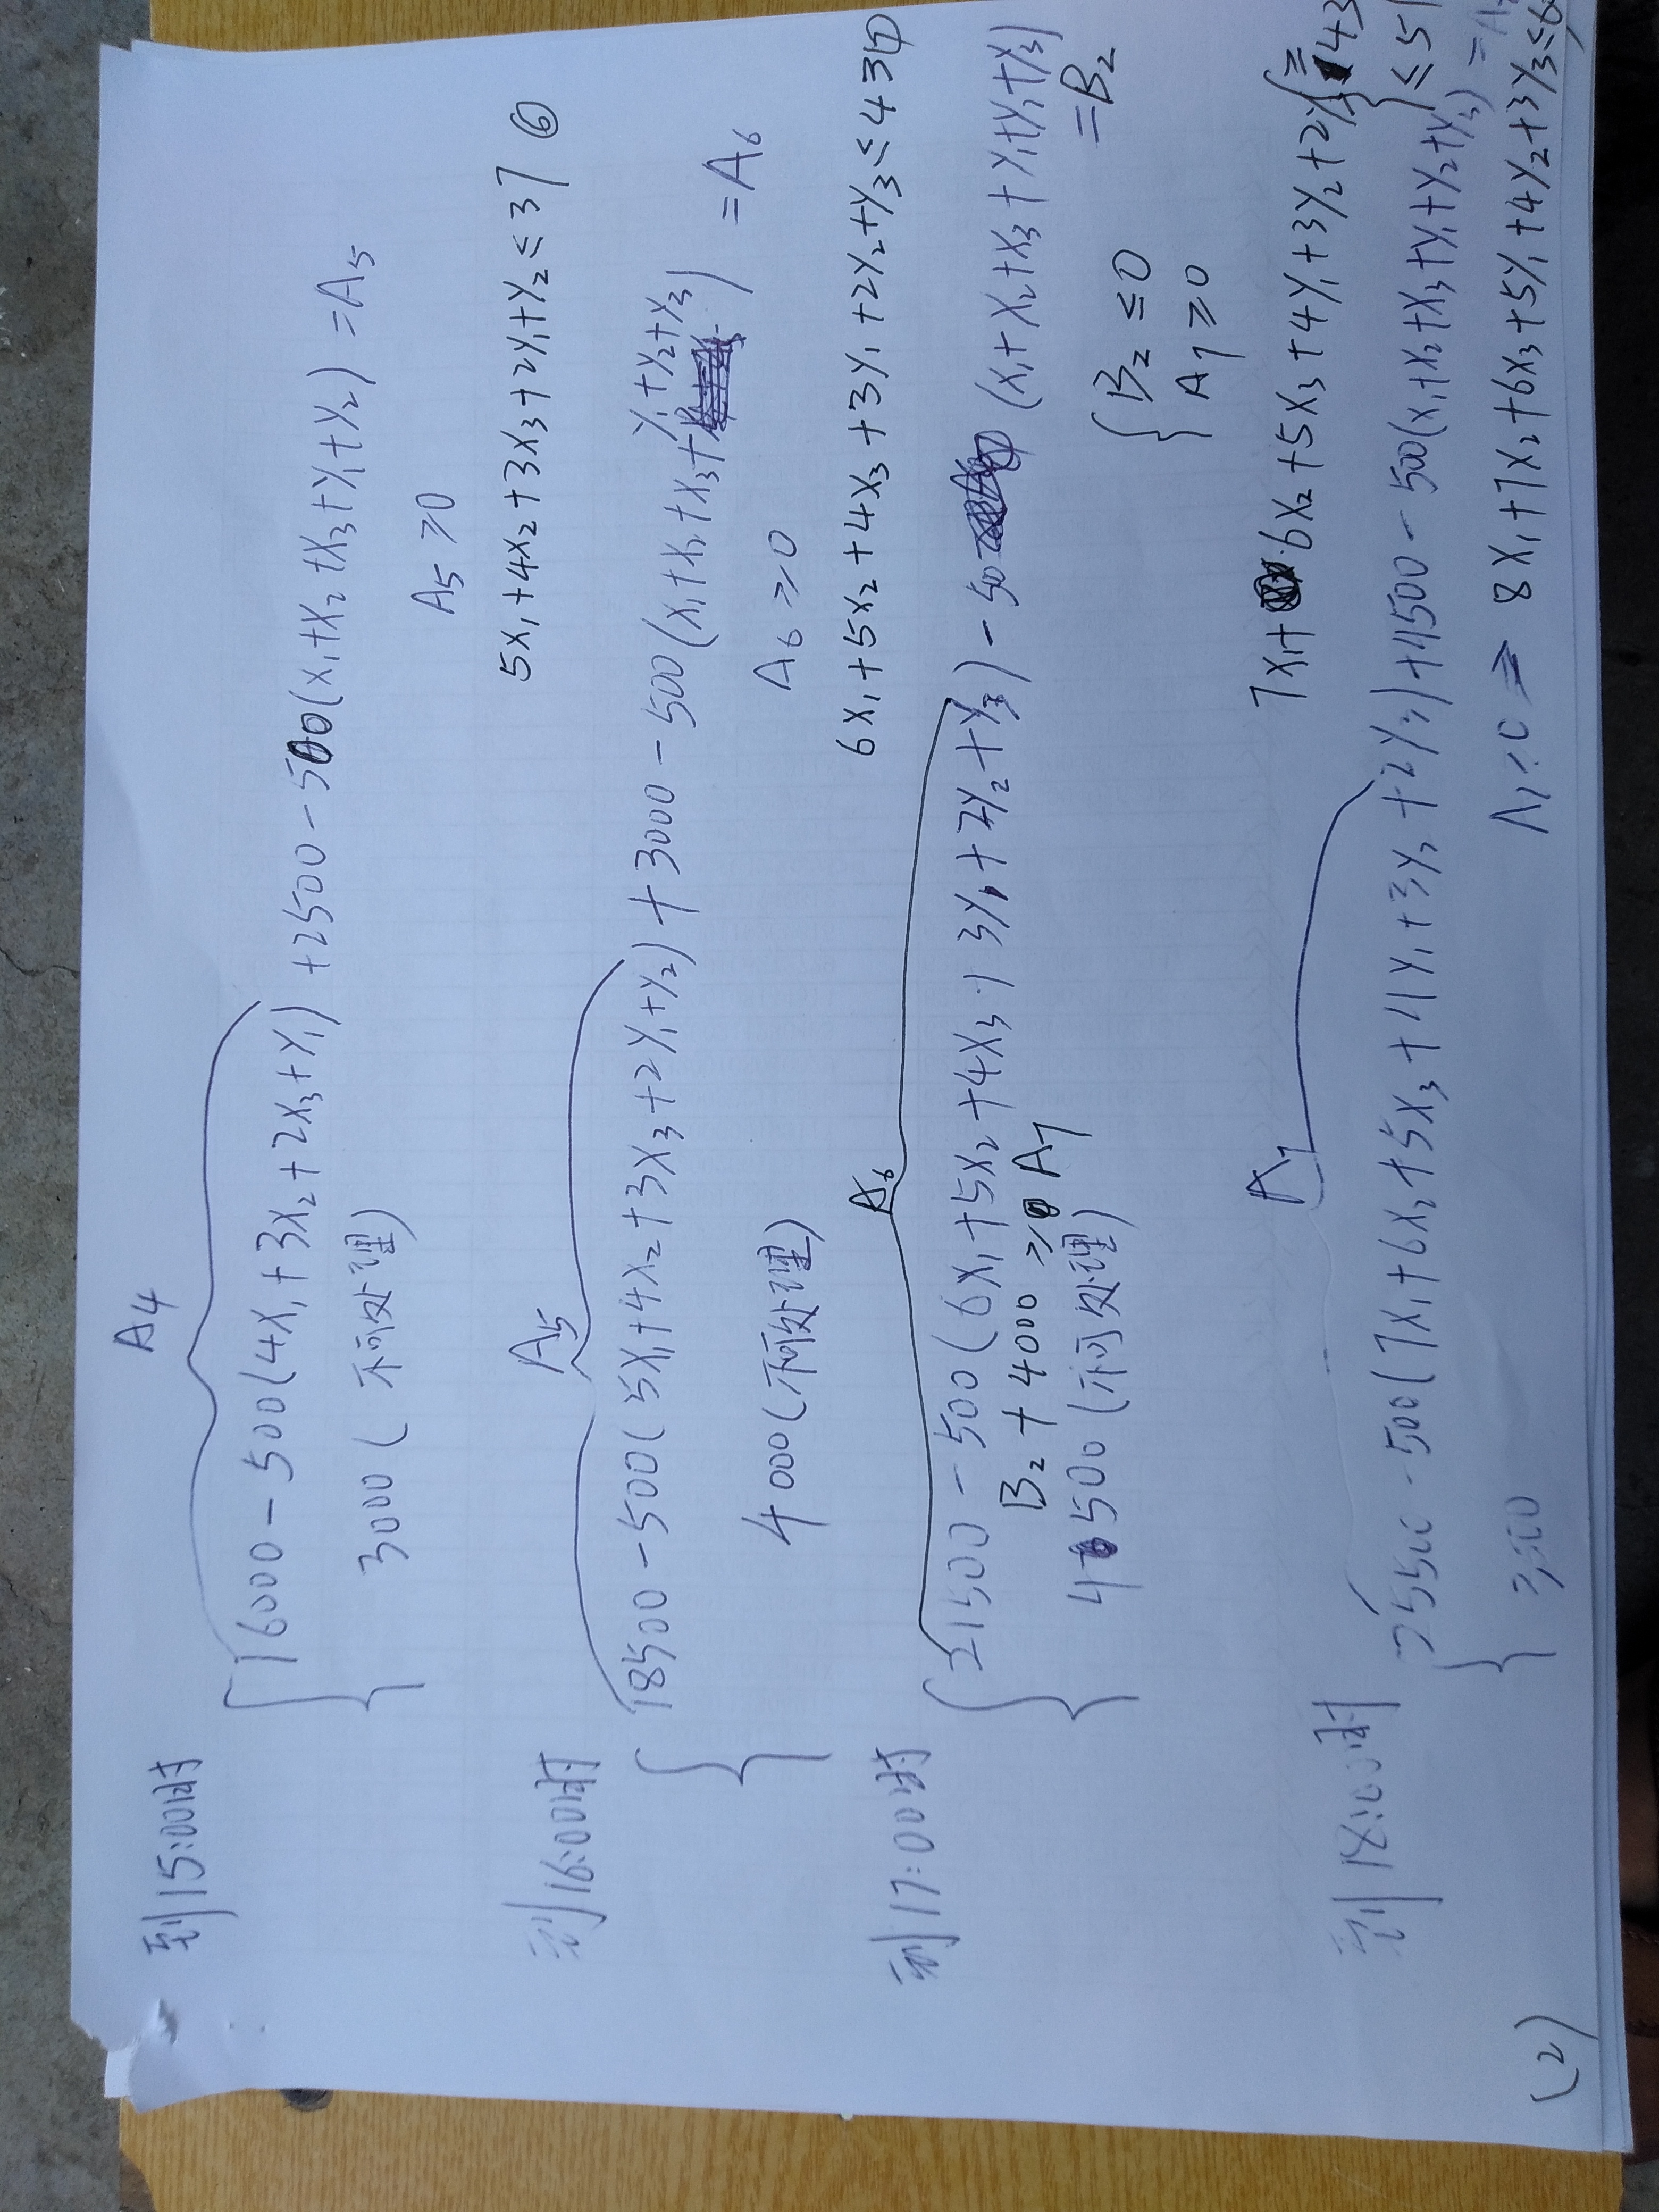 到15:00时
A4
16000-500(4x₁+3x₂+2x₃+y₁)+2500-500(x₁+x₂+x₃+y₁+y₂)=A₅
3000(不可处理)
A₅≥0
5x₁+4x₂+3x₃+2y₁+y₂≤37 ⑥
到16:00时
A₅
18500-500(5x₁+4x₂+3x₃+2y₁+y₂)+3000-500(x₁+x₂+x₃+y₁+y₂+y₃)=A₆
4000(不可处理)
A₆≥0
6x₁+5x₂+4x₃+3y₁+2y₂+y₃≤43⑦
到17:00时
A₆
21500-500(6x₁+5x₂+4x₃+3y₁+2y₂+y₃)-500(x₁+x₂+x₃+y₁+y₂+y₃)
=B₂
B₂+4000≥A7
4500(不可处理)
{B₂≤0
A7≥0
7x₁+6x₂+5x₃+4y₁+3y₂+2y₃{≥43
≤51
到18:00时
A7
25500-500(7x₁+6x₂+5x₃+4y₁+3y₂+2y₃)+4500-500(x₁+x₂+x₃+y₁+y₂+y₃)
8x₁+7x₂+6x₃+5y₁+4y₂+3y₃≤
(2)